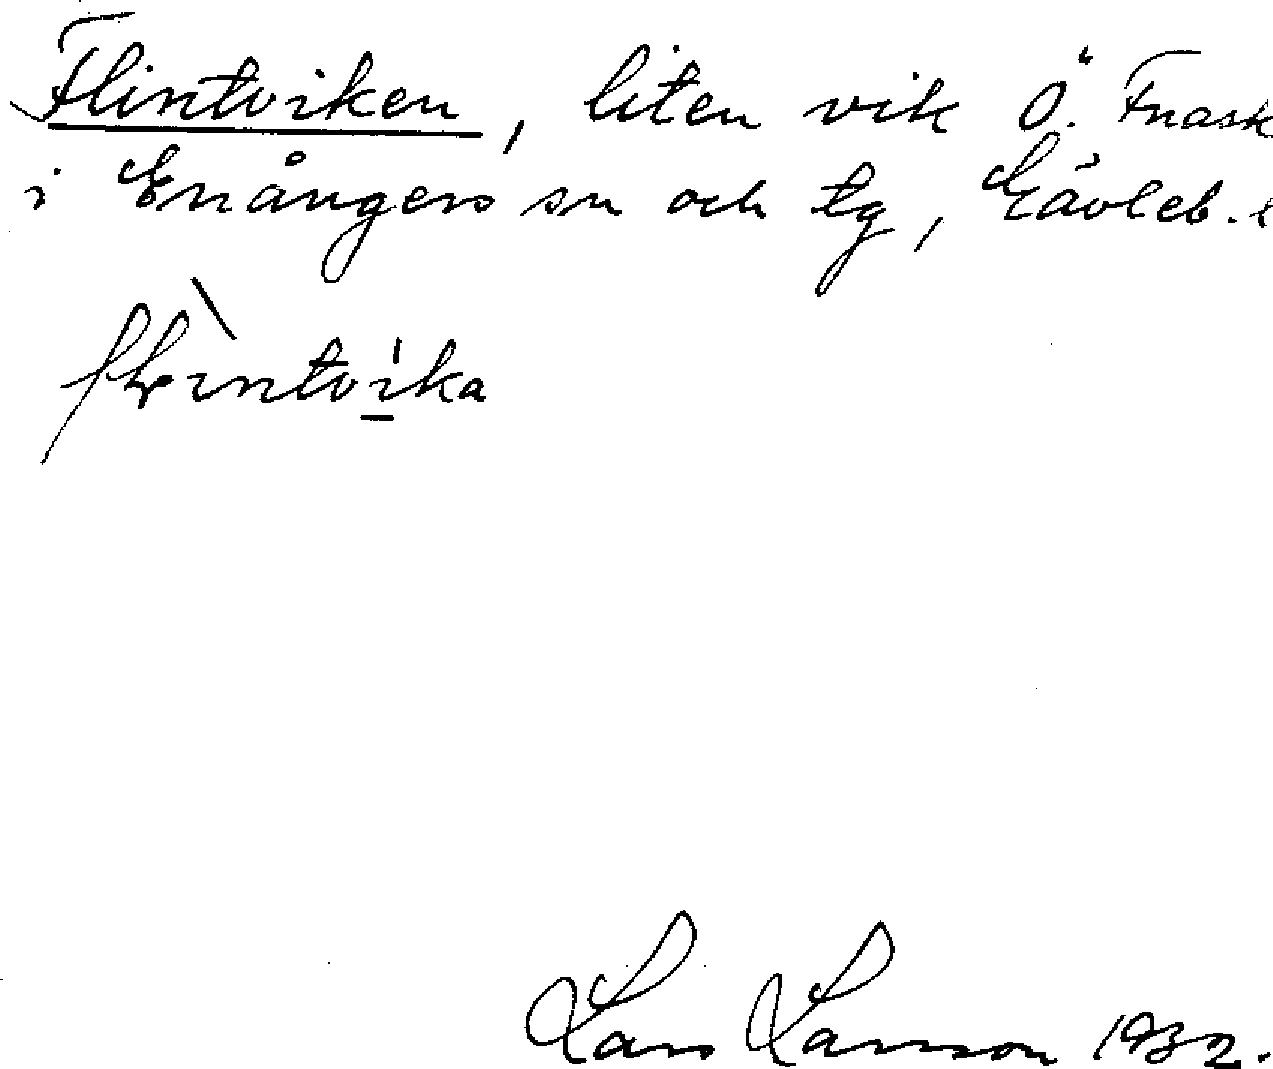 Flintviken, liten vik Ö. Frask
i Enångers sn och tg, Gävleb. l
flìntvika
Lars Larsson 1932.